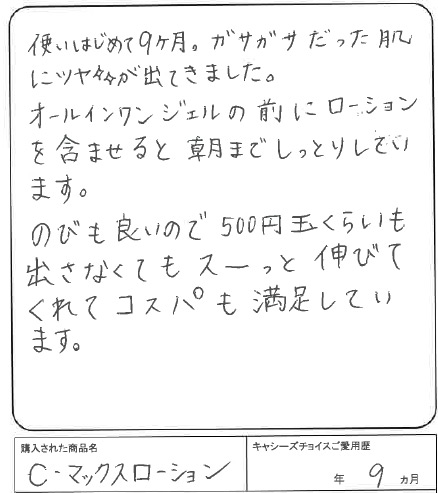 使いはじめて9ヶ月。ガサガサだった肌
にツヤ々が出てきました。
オールインワンジェルの前にローション
を含ませると朝までしっとりしてい
ます。
のびも良いので500円玉くらいも
出さなくてもスーっと伸びて
くれてコスパも満足してい
ます。
購入された商品名
C・マックスローション
キャシーズチョイスご愛用歴
年 9 ヵ月